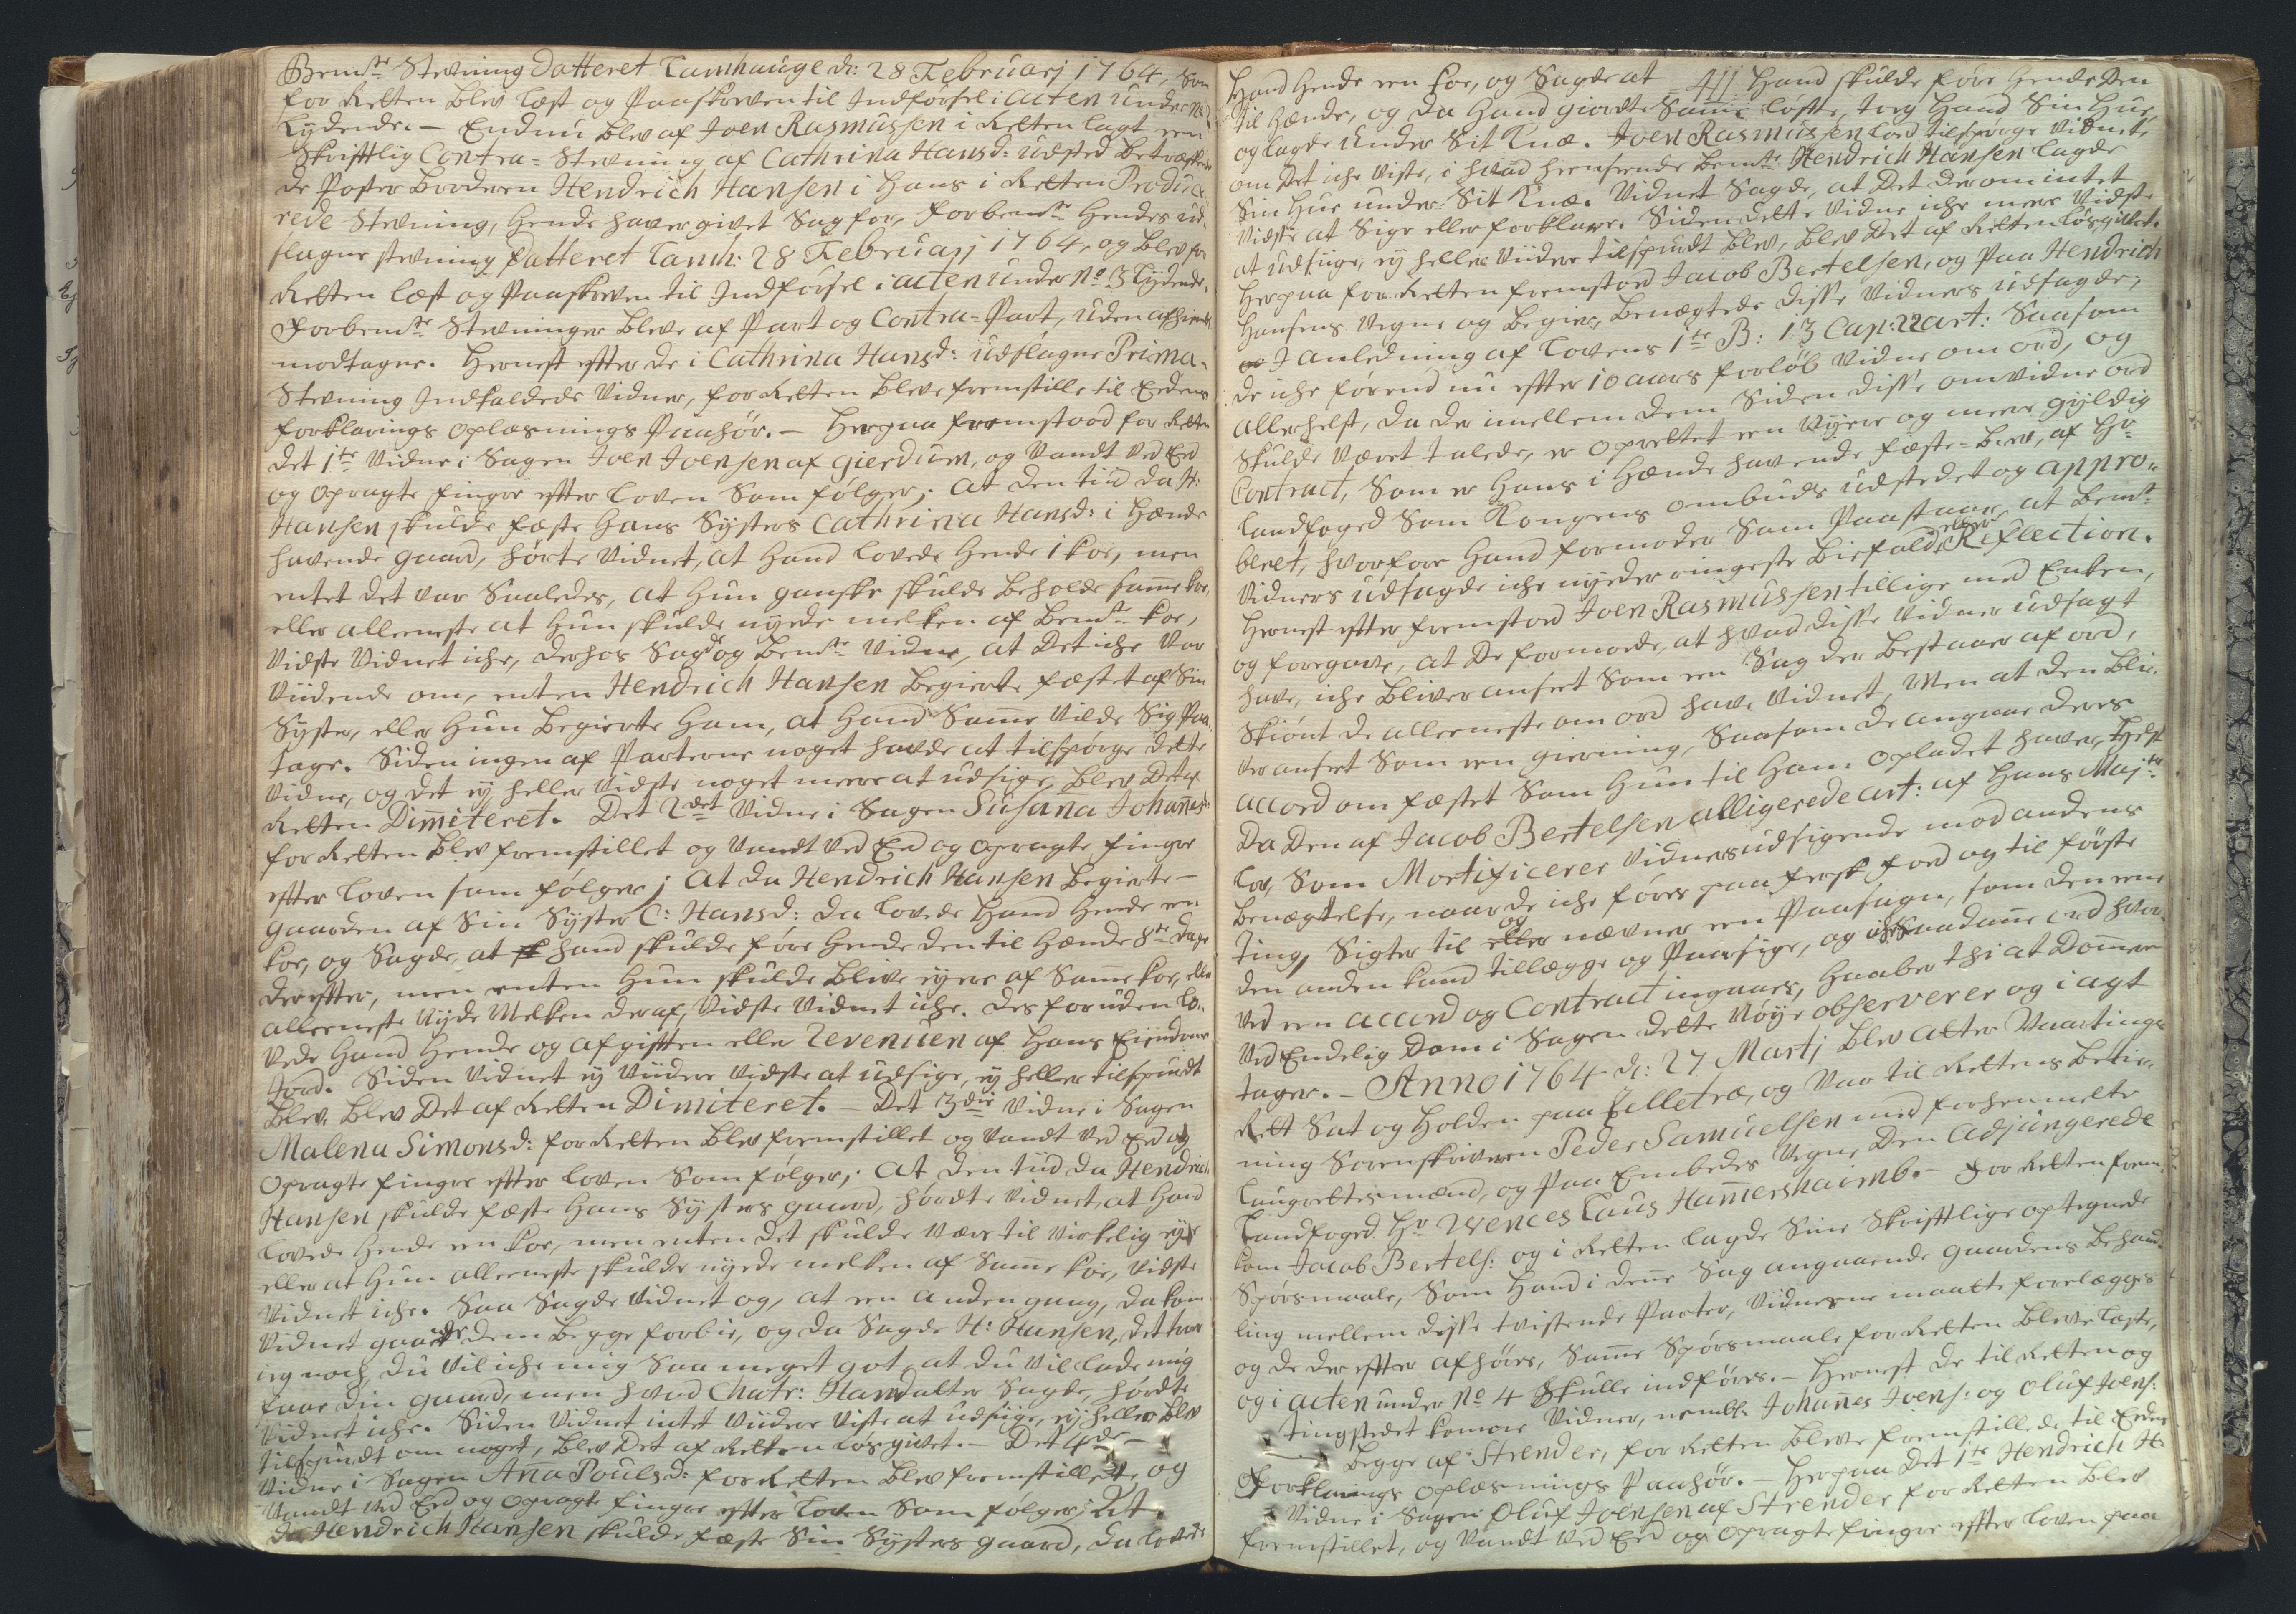 Bem.te Stevning Datteret Tamhauge d: 28 Februarj 1764, Som
for Retten blev læst og Paaskreven til Indførsel i acten under No 2
Lydende. — Endnu blev af Joen Rasmussen i Retten lagt een
Skrifttlig Contra-Stevning af Cathrina Hansd: udsted betræffen
de Poster Broderen Hendrich Hansen i Hans i Retten Produce
rede Stevning, hende haver givet Sag for, forbem.te Hendes ud-
slagne stevning Datteret Tamh: 28 Februarj 1764, og blev for
Retten læst og Paaskreven til Indførsel i acten under No 3 Lydende.
Forbem.te Stevninger bleve af Part og Contra-Part, uden afhiemle
modtagne. Hernest efter de i Cathrina Hansd: udslagne Prima-
Stevning Indkaldede Vidner, for Retten bleve fremstille til Eedens
forklarings oplæsnings Paahør. — Herpaa fremstoed for Retten
det 1te Vidne i Sagen Joen Joensen af Gierdum, og Vandt Ved Eed
og opragte finger efter Loven Som følger; at den tiid da H:
Hansen skulde fæste Hans Systers Cathrina Hansd: i Hænde
havende gaard, hørte Vidnet, at Hand lovede Hende 1 koe, men
entet det var Saaledes, at Hun ganske skulde beholde samme koe,
eller alleeneste at Hun skulde nyede melken af bem.te koe,
Vidste Vidnet iche, derhos Sagde og bem.te Vidne, at Det iche Var
Viidende om, enten Hendrich Hansen begierte fæstet af Sin
Syster, eller Hun begierte Ham, at Hand Samme Vilde Sig Paa-
tage. Siden ingen af Parterne noget hafde at tilspørge dette
Vidne, og det ey heller Vidste noget meere at udsige, blev Det af
Retten Dimiteret. Det 2det Vidne i Sagen Susana Johannesd:
for Retten blev fremstillet og Vandt Ved Eed og opragte finger
efter Loven som følger; at da Hendrich Hansen begierte —
gaarden af Sin Syster C: Hansd: da lovede Hand Hende een
koe, og Sagde, at hand skulde føre Hende den til Hænde 8te Dage
derefter, men enten Hun skulde blive eyere af Samme koe, eller
alleeneste Nyde Melken deraf, Vidste Vidnet iche. Des foruden lo-
vede Hand Hende og afgifften eller Revenuen af Hans Eiendoms
Jord. Siden Vidnet ey Viidere Vidste at udsige, ey heller tilspurdt
blev, blev Det af Retten Dimiteret. — Det 3die Vidne i Sagen
Malena Simonsd: for Retten blev fremstillet og Vandt Ved Eed og
opragte finger efter Loven Som følger; at den tiid da Hendrich
Hansen skulde fæste Hans Systers gaard, hørdte Vidnet, at Hand
lovede Hende een koe, men enten det skulde Være til Virkelig eye
eller at Hun alleeneste skulde nyede melken af Samme koe, Vidste
Vidnet iche. Saa Sagde Vidnet og, at een anden gang, da kom
Vidnet gaaende dem begge forbie, og da Sagde H: Hansen, det troer
ieg noch, du Vil iche mig Saa meget got, at du Vil lade mig
faae din gaard, men hvad Chatr: Hansdatter Sagde, hørdte
Vidnet iche. Siden Vidnet intet Viidere Viste at udsige, ey heller blev
tilspurdt om noget, blev Det af Retten løsgivet. — Det 4de —
Vidne i Sagen Anna Poulsd: for Retten blev fremstillet, og
Vandt Ved Eed og opragte finger efter Loven Som følger; At
da Hendrich Hansen skulde fæste Sin Systers gaard, da lovede
Hand Hende een koe, og Sagde at Hand skulde føre Hende Den
til Hænde, og da Hand giordte Samme løfte, tog Hand Sin Hue
og lagde under Sit Knæ. Joen Rasmussen lod tilspørge Vidnet,
om Det iche viste, i hvad heenseende bem.te Hendrich Hansen lagde
Sin Hue under Sit Knæ. Vidnet Sagde, at Det derom intet
Vidste at Sige eller forklare. Siden dette Vidne iche meere Vidste
at udsige, ey heller Viidere tilspurdt blev, blev Det af Retten løsgivet.
Herpaa for Retten fremstod Jacob Bertelsen, og Paa Hendrich
Hansens Vegne og begier, benægtede disse Vidners udsagde,
I anledning af Lovens 1te B: 13 Cap: 22 art: Saasom
de iche førend nu efter 10 aars forløb Vidne om ord, og
allerhelst, da der imellem dem Siden disse omvidne ord
skulde Været talede, er oprettet een Nyere og meere gyldig
Contract, Som er Hans i Hænde havende fæste-brev, af Hr
Landfoged Som Kongens ombuds udstedet og appro-
beret, hvorfore Hand formoder Som Paastaar, at bem.te
Vidners udsagde iche nyeder ringeste biefald eller Reflection.
Hernest efter fremstod Joen Rasmussen tillige med Enken,
og foregave, at De formode, at hvad disse Vidner udsagt
have, iche bliver anseet Som een Sag der bestaaer af ord,
Skiønt de alleeneste om ord have Vidnet, Men at den bli-
ver anseet Som een gierning, Saasom de angaar Deres
accord om fæstet Som Hun til Ham opladet haver, Helst
Da Den af Jacob Bertelsen alligerede art: af Hans Maj.ts
Lov, Som Mortificerer Vidners udsigende mod andens
benægtelse, naar de iche føres paa fersk foed og til første
Ting, Sigter til og nævner een Paasagn, som den eene
den anden kand tillægge og Paasige, og iche Saadanne ord hvor-
ved een accord og Contract ingaaes, Haaber thi at Dommeren
Ved Endelig Dom i Sagen dette Nøye observerer og i agt
tager. — Anno 1764 d: 27 Martj blev atter Vaartings
Rett Sat og Holden paa Selletræ, og Var til Rettens betie-
ning Sorenskriveren Peder Samuelsen med forhenmelte
Laugrettesmænd, og Paa Embedes Vegne Den Adjungerede
Landfoged Hr Wenceslaus Hammershaimb. — For Retten frem-
kom Jacob Bertels: og i Retten lagde Sine Skrifttlige optegnede
Spørsmaale, Som Hand i denne Sag angaaende gaardens behand-
ling mellem disse tvistende Parter, Vidnerne maatte forelægges
og de der efter afhøres, Samme Spørsmaale for Retten bleve læste,
og i acten under No 4 Skulle indføres. — Hernest de til Retten og
Tingstedet komne Vidner, nembl: Johannes Joens: og Oluf Joens:
begge af Strender, for Retten bleve fremstillede til Eedens
Forklarings oplæsnings Paahør. — Herpaa Det 1te Hendrich H:
Vidne i Sagen Oluf Joensen af Strender for Retten blev
fremstillet, og Vandt Ved Eed og opragte finger efter Loven paa